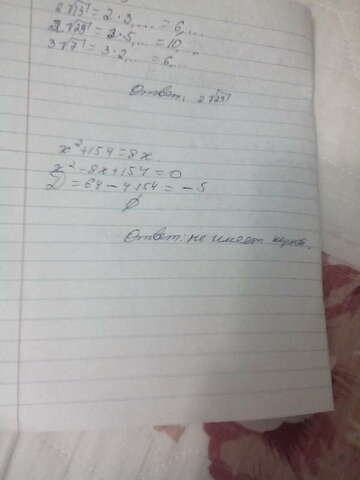 2√13 = 2·3,... = 6,...
2√29 = 2·5,... = 10,...
3√7 = 3·2,... = 6,...
Ответ: 2√29
x²+154=8x.
x²-8x+154=0
D=64-4·154=-5
∅
Ответ: не имеет корней.